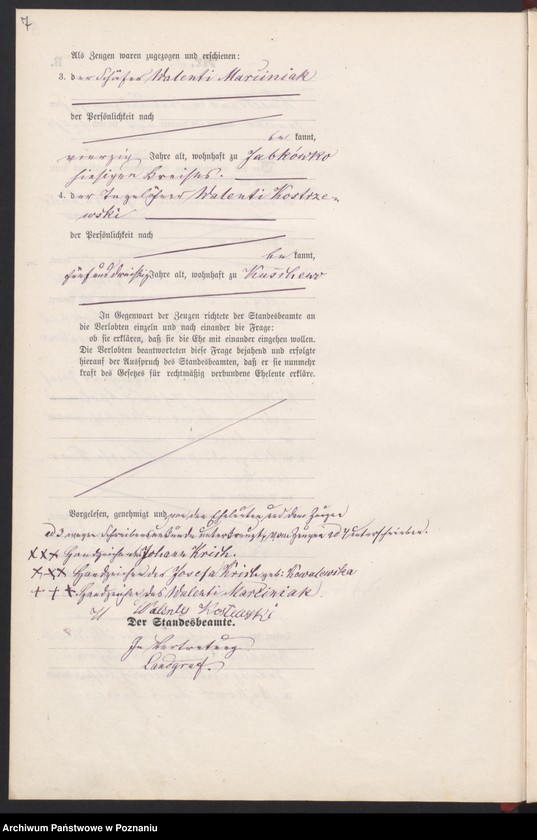 7
Als Zeugen waren zugezogen und erschienen:
3. der Schäfer Walenti Marciniak
der Persönlichkeit nach
be kannt,
vierzig Jahre alt, wohnhaft zu Jabkówko
hiesigen Kreises.
4. der Tagelöhner Walenti Kostrze-
wski
der Persönlichkeit nach
be kannt,
fünf und dreißig Jahre alt, wohnhaft zu Kuschewo
In Gegenwart der Zeugen richtete der Standesbeamte an
die Verlobten einzeln und nach einander die Frage:
ob sie erklären, daß sie die Ehe mit einander eingehen wollen.
Die Verlobten beantworteten diese Frage bejahend und erfolgte
hierauf der Ausspruch des Standesbeamten, daß er sie nunmehr
kraft des Gesetzes für rechtmäßig verbundene Eheleute erkläre.
Vorgelesen, genehmigt und von den Eheleuten und dem Zeugen
ad 3 wegen Schreibensunkunde unterkreuzt, vom Zeugen ad 4 unterschrieben.
XXX Handzeichen des Johann Krich.
XXX Handzeichen der Josefa Krich geb: Kowalewska
+++ Handzeichen des Walenti Marciniak.
Walenty
Der Standesbeamte.
In Vertretung
Landgraf.
Archiwum Państwowe w Poznaniu